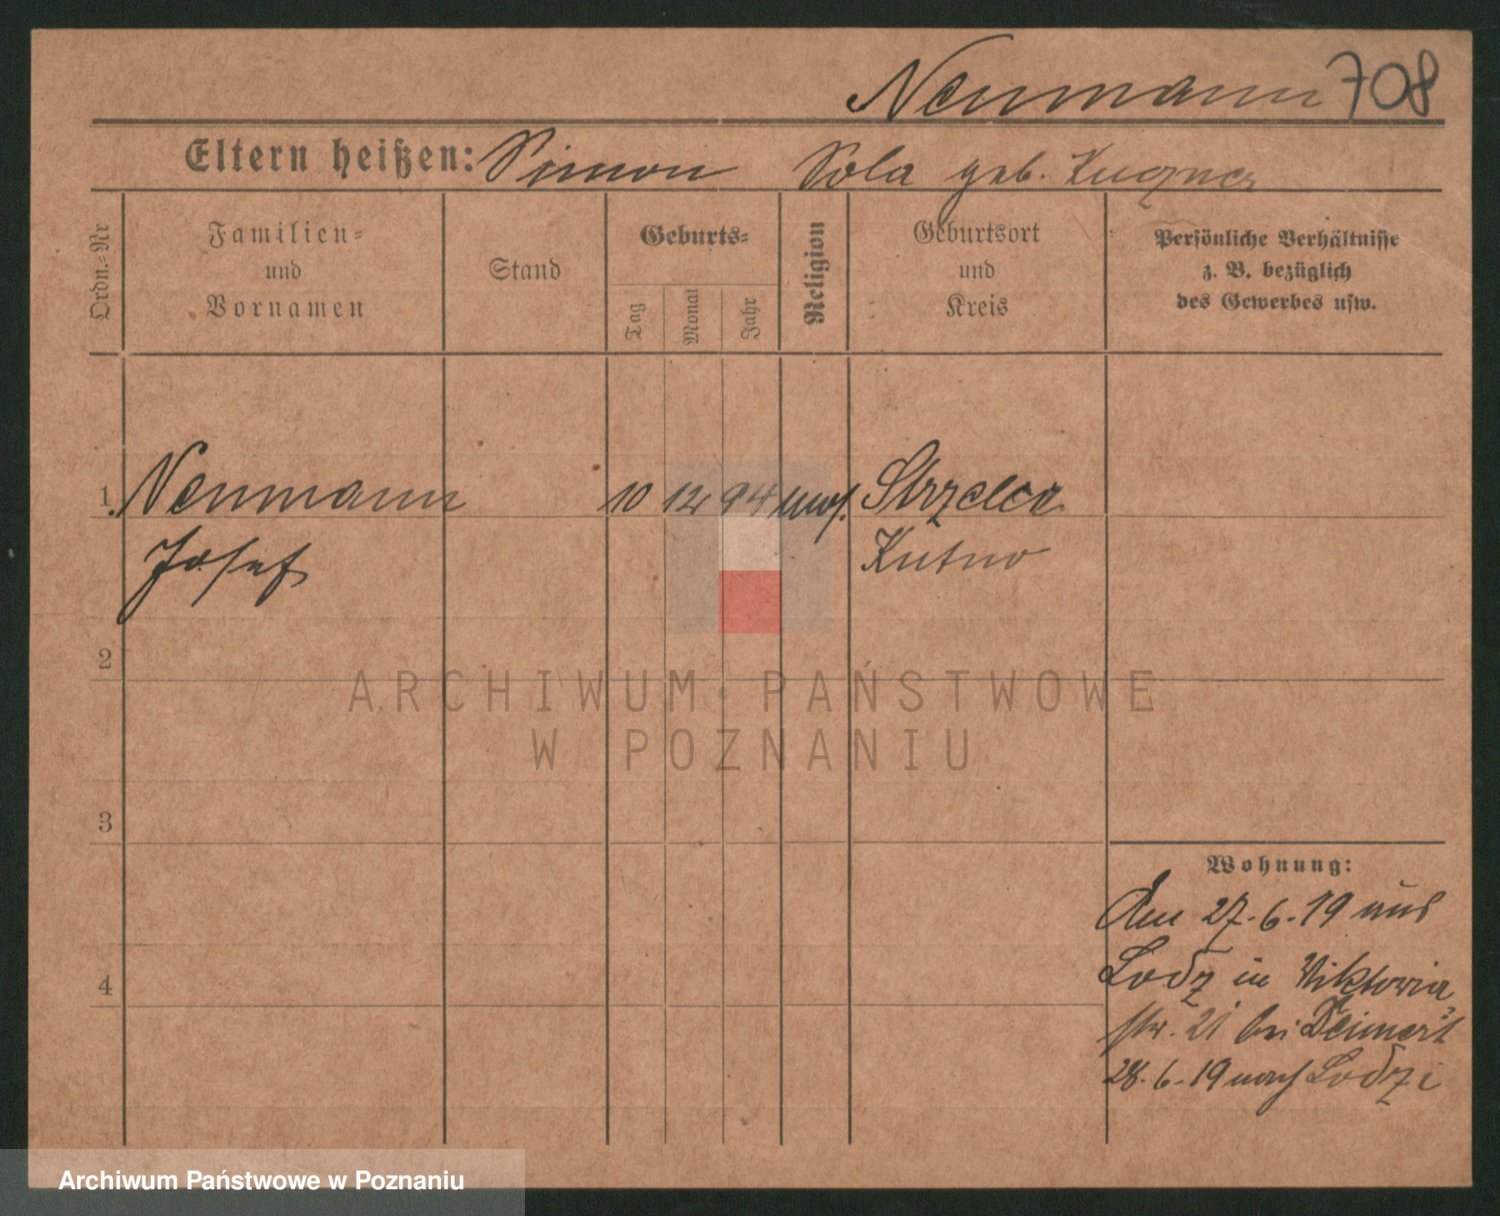 Neumann 708
Eltern heißen: Simon Sola geb. Kuczner
Ordn.=Nr
Familien=
und
Vornamen
Stand
Geburts=
Tag
Monat
Jahr
Religion
Geburtsort
und
Kreis
Persönliche Verhältnisse
z. B. bezüglich
des Gewerbes usw.
1. Neumann 10 12 94 mos. Strzelce
Josef Kutno
2
ARCHIWUM PAŃSTWOWE
W POZNANIU
3
Wohnung:
Am 27.6.19 aus
Lodz in Viktoria
str. 21 bei
4
28.6.19 nach Lodzi
Archiwum Państwowe w Poznaniu